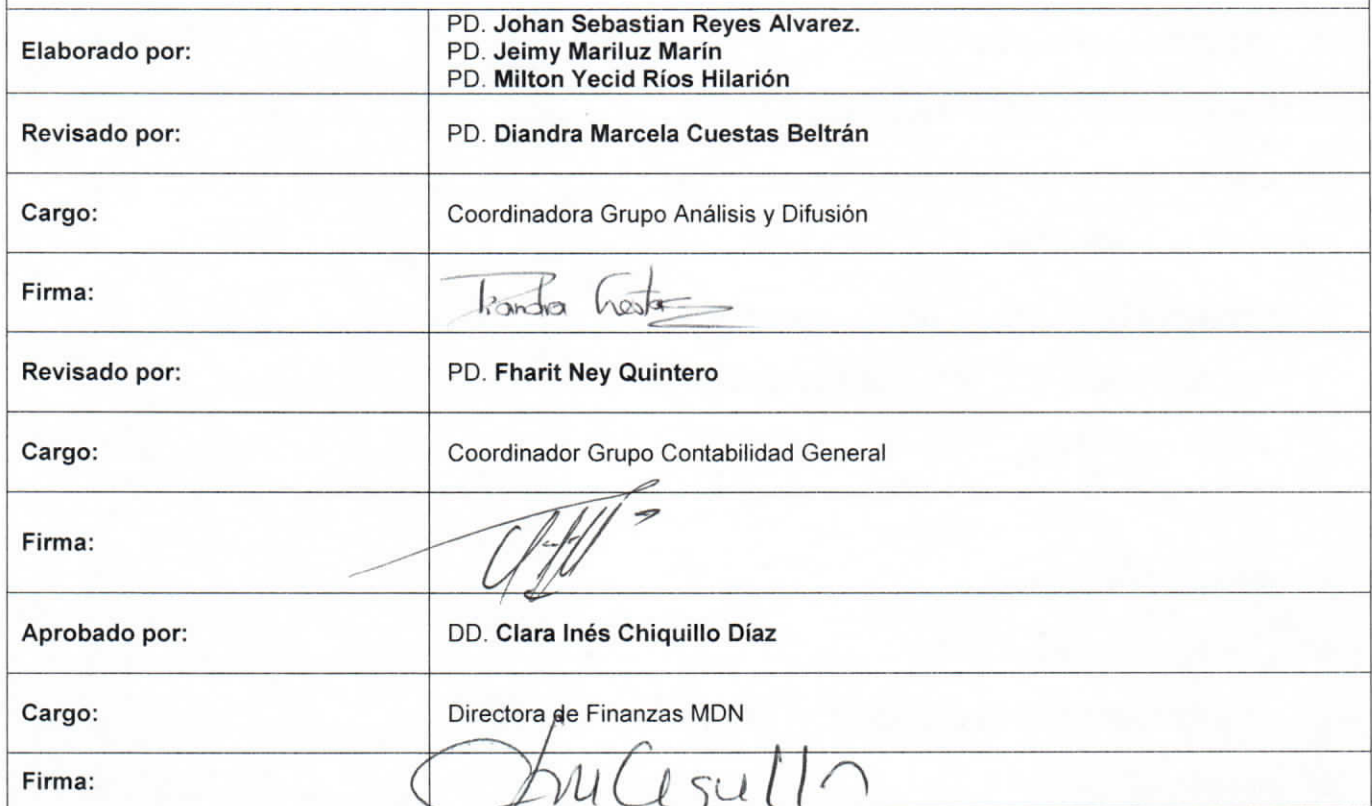 Elaborado por:
PD. Johan Sebastian Reyes Alvarez.
PD. Jeimy Mariluz Marín
PD. Milton Yecid Ríos Hilarión
Revisado por:
PD. Diandra Marcela Cuestas Beltrán
Cargo:
Coordinadora Grupo Análisis y Difusión
Firma:
Revisado por:
PD. Fharit Ney Quintero
Cargo:
Coordinador Grupo Contabilidad General
Firma:
Aprobado por:
DD. Clara Inés Chiquillo Díaz
Cargo:
Directora de Finanzas MDN
Firma: